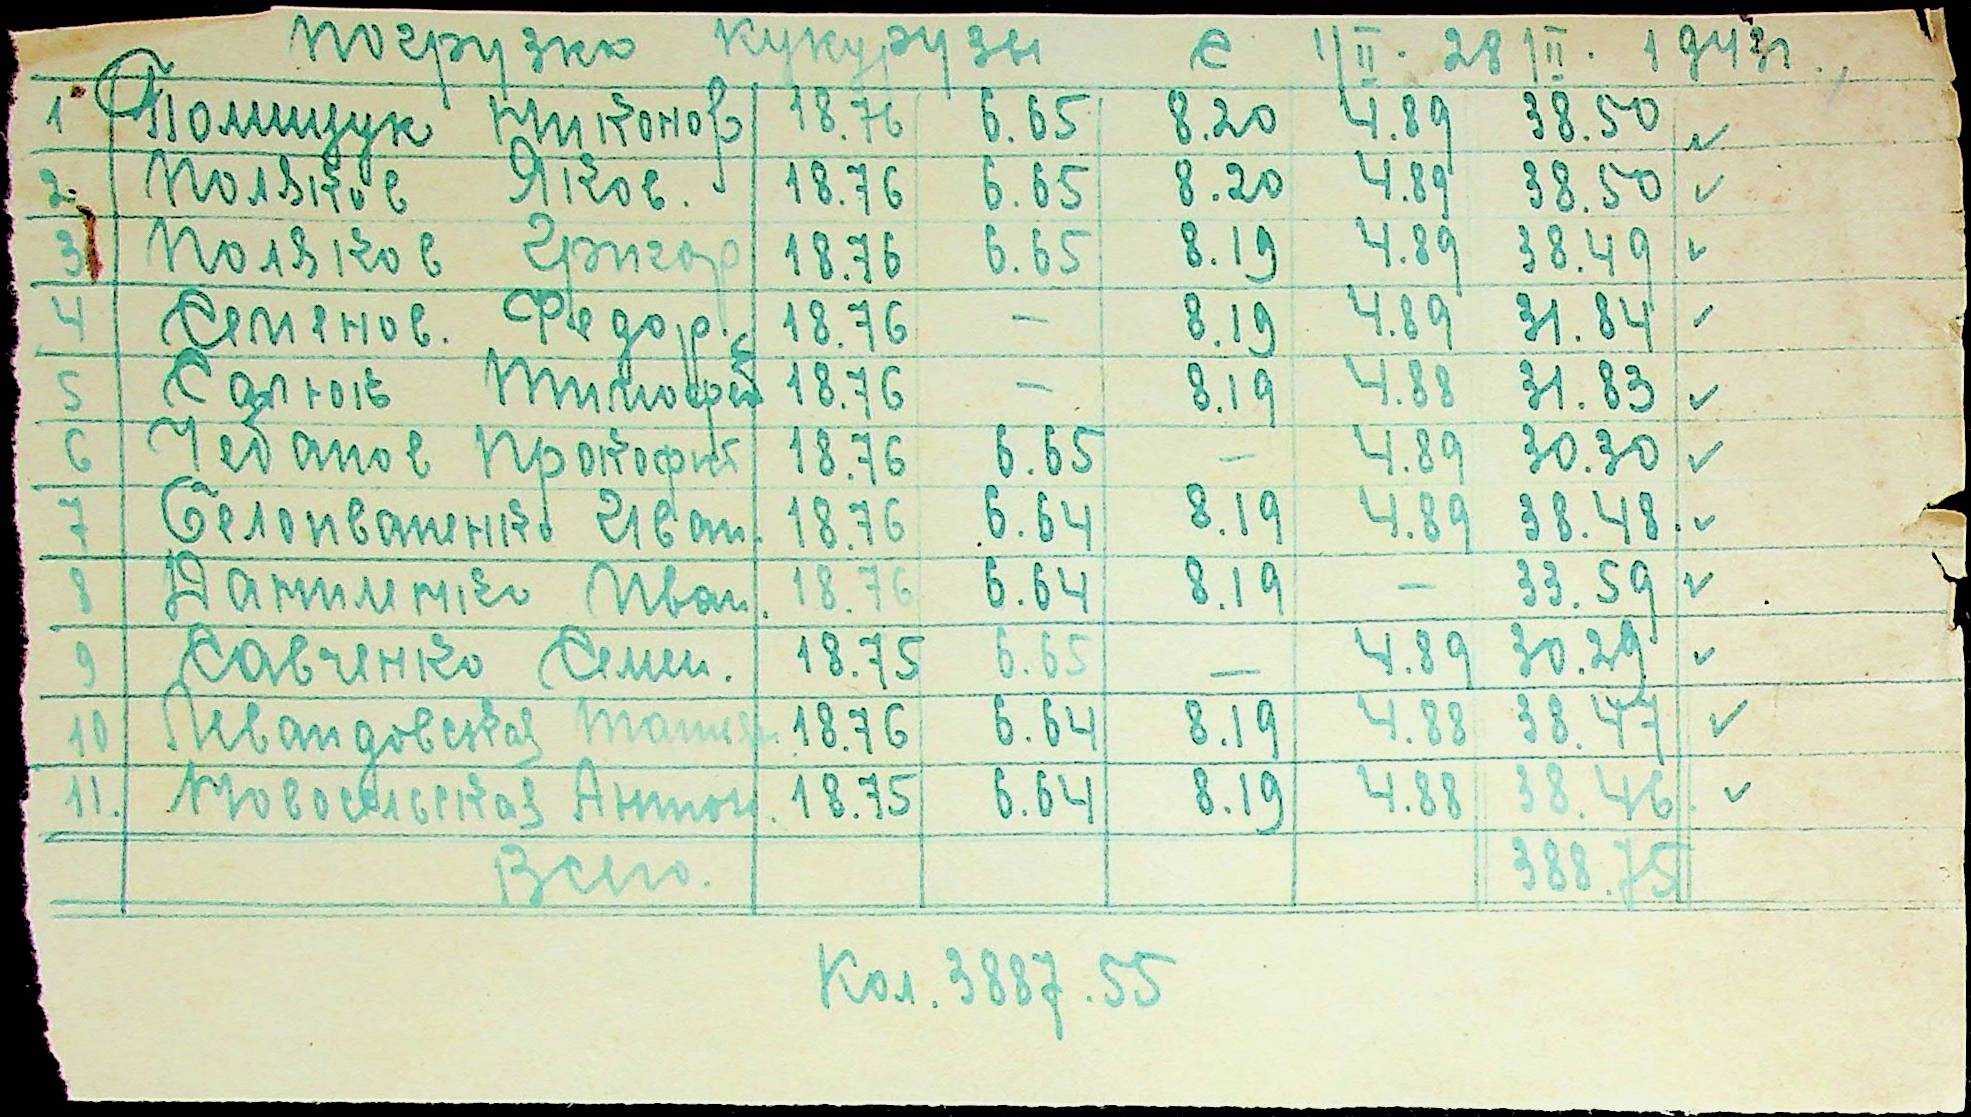 Погрузка кукурузы с 1/II. 28/II. 1943г.
1 Полищук Никонор 18.76 6.65 8.20 4.89 38.50
2. Поляков Яков. 18.76 6.65 8.20 4.89 38.50
3 Поляков Григор 18.76 6.65 8.19 4.89 38.49
4 Семенов. Федор. 18.76 – 8.19 4.89 31.84
5 Тимофей 18.76 – 8.19 4.88 31.83
6 Чебанов Прокофий 18.76 6.65 – 4.89 30.30
7 Иван. 18.76 6.64 8.19 4.89 38.48.
8 Даниленко Иван. 18.76 6.64 8.19 – 33.59
9 Савченко Семен. 18.75 6.65 – 4.89 30.29
10 Левандовская 18.76 6.64 8.19 4.88 38.47
11. Новосельская Антон. 18.75 6.64 8.19 4.88 38.46.
Всего. 388.75
Кол. 3887.55